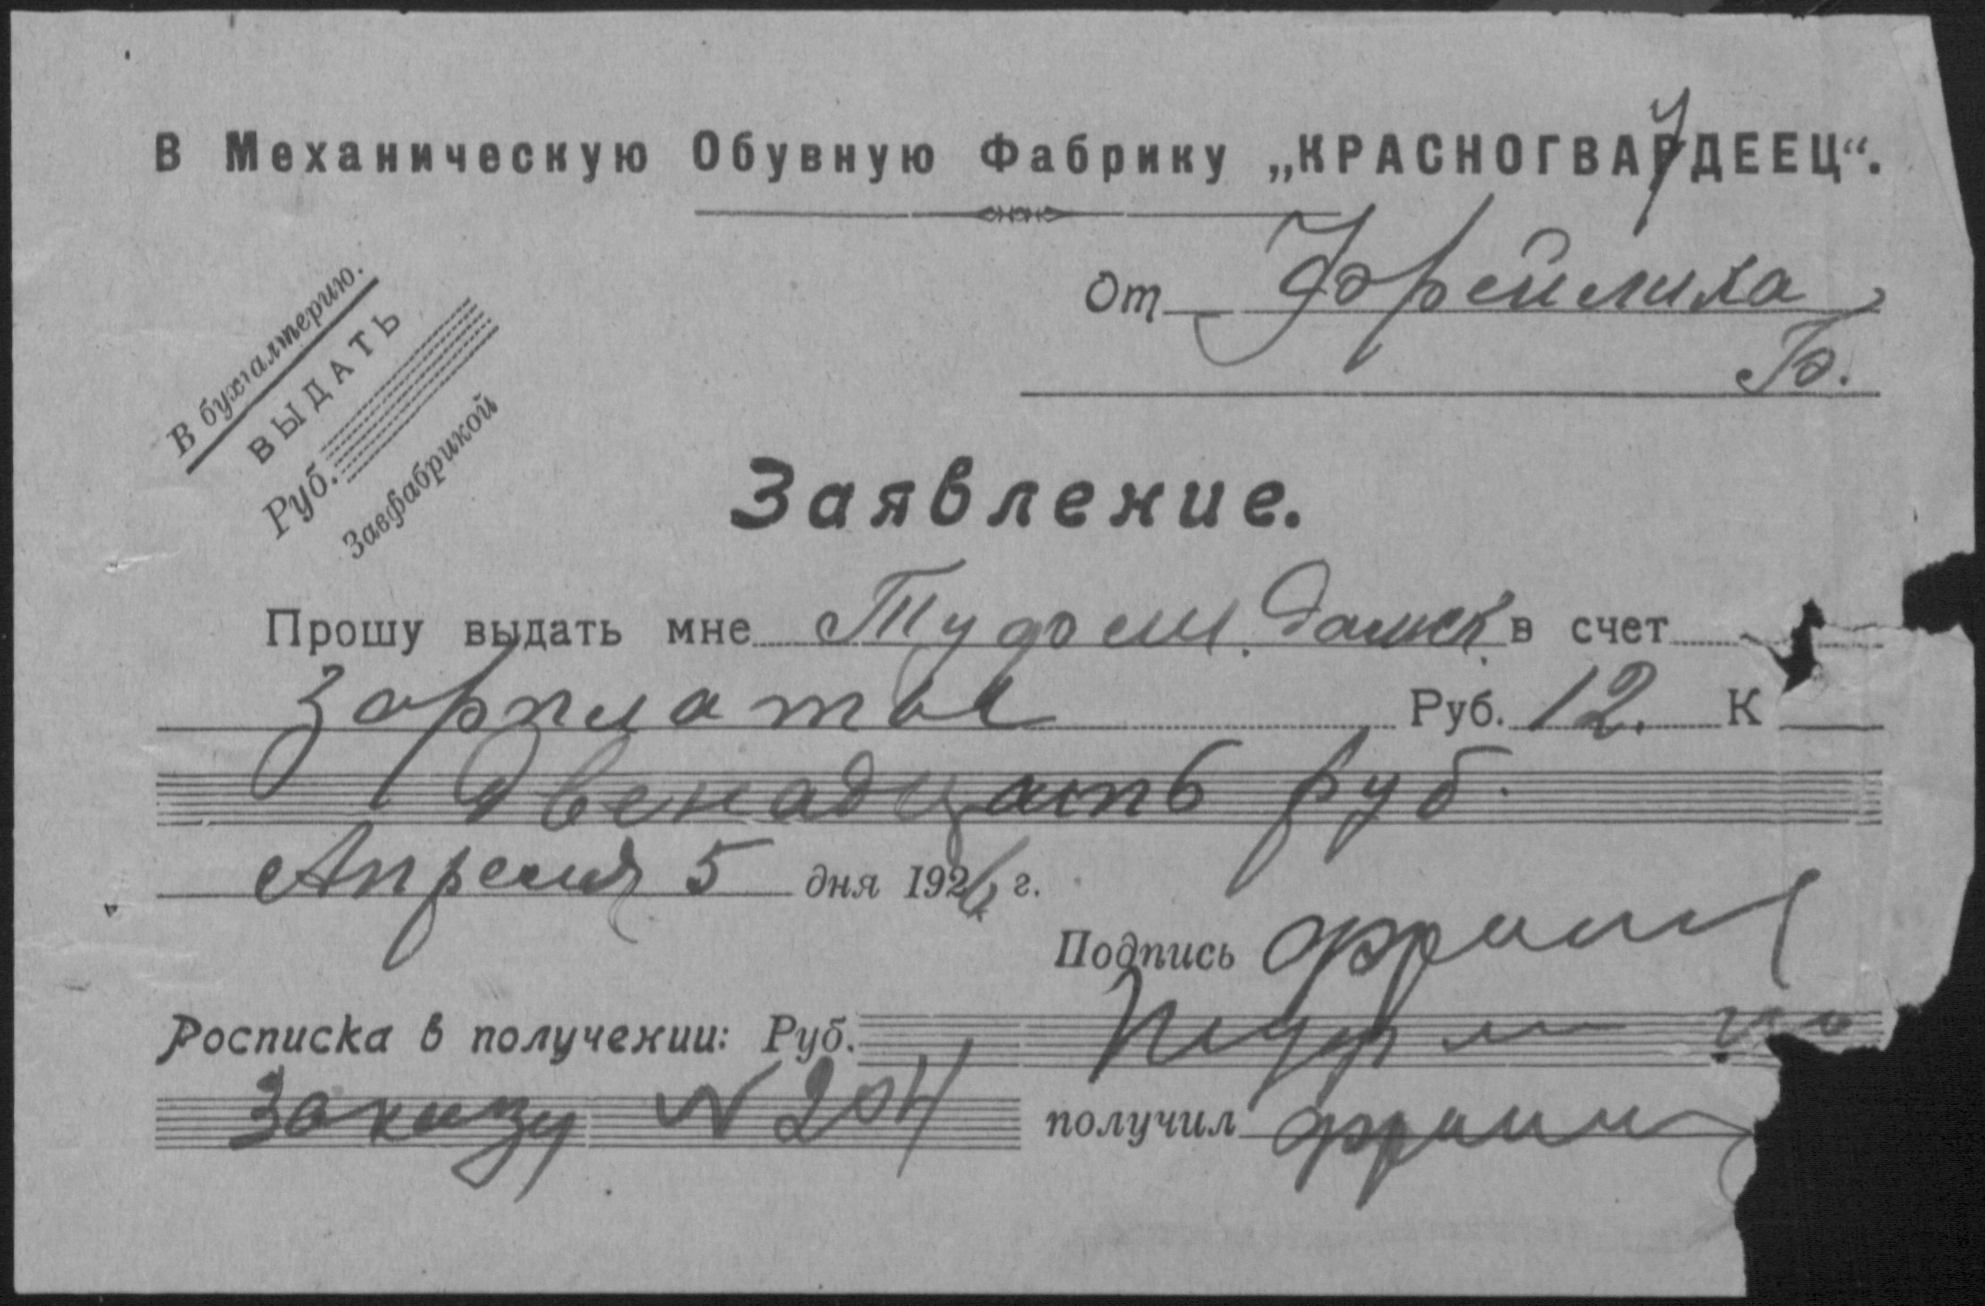 В Механическую Обувную Фабрику „КРАСНОГВАРДЕЕЦ“.
От Фрейлиха
Б.
В бухгалтерию.
ВЫДАТЬ
Руб.
Завфабрикой
Заявление.
Прошу выдать мне Туфли дамск в счет
зарплаты Руб. 12. К
Двенадцать руб.
Апреля 5 дня 1926 г.
Подпись
Росписка в получении: Руб.
Заказу N 204 получил